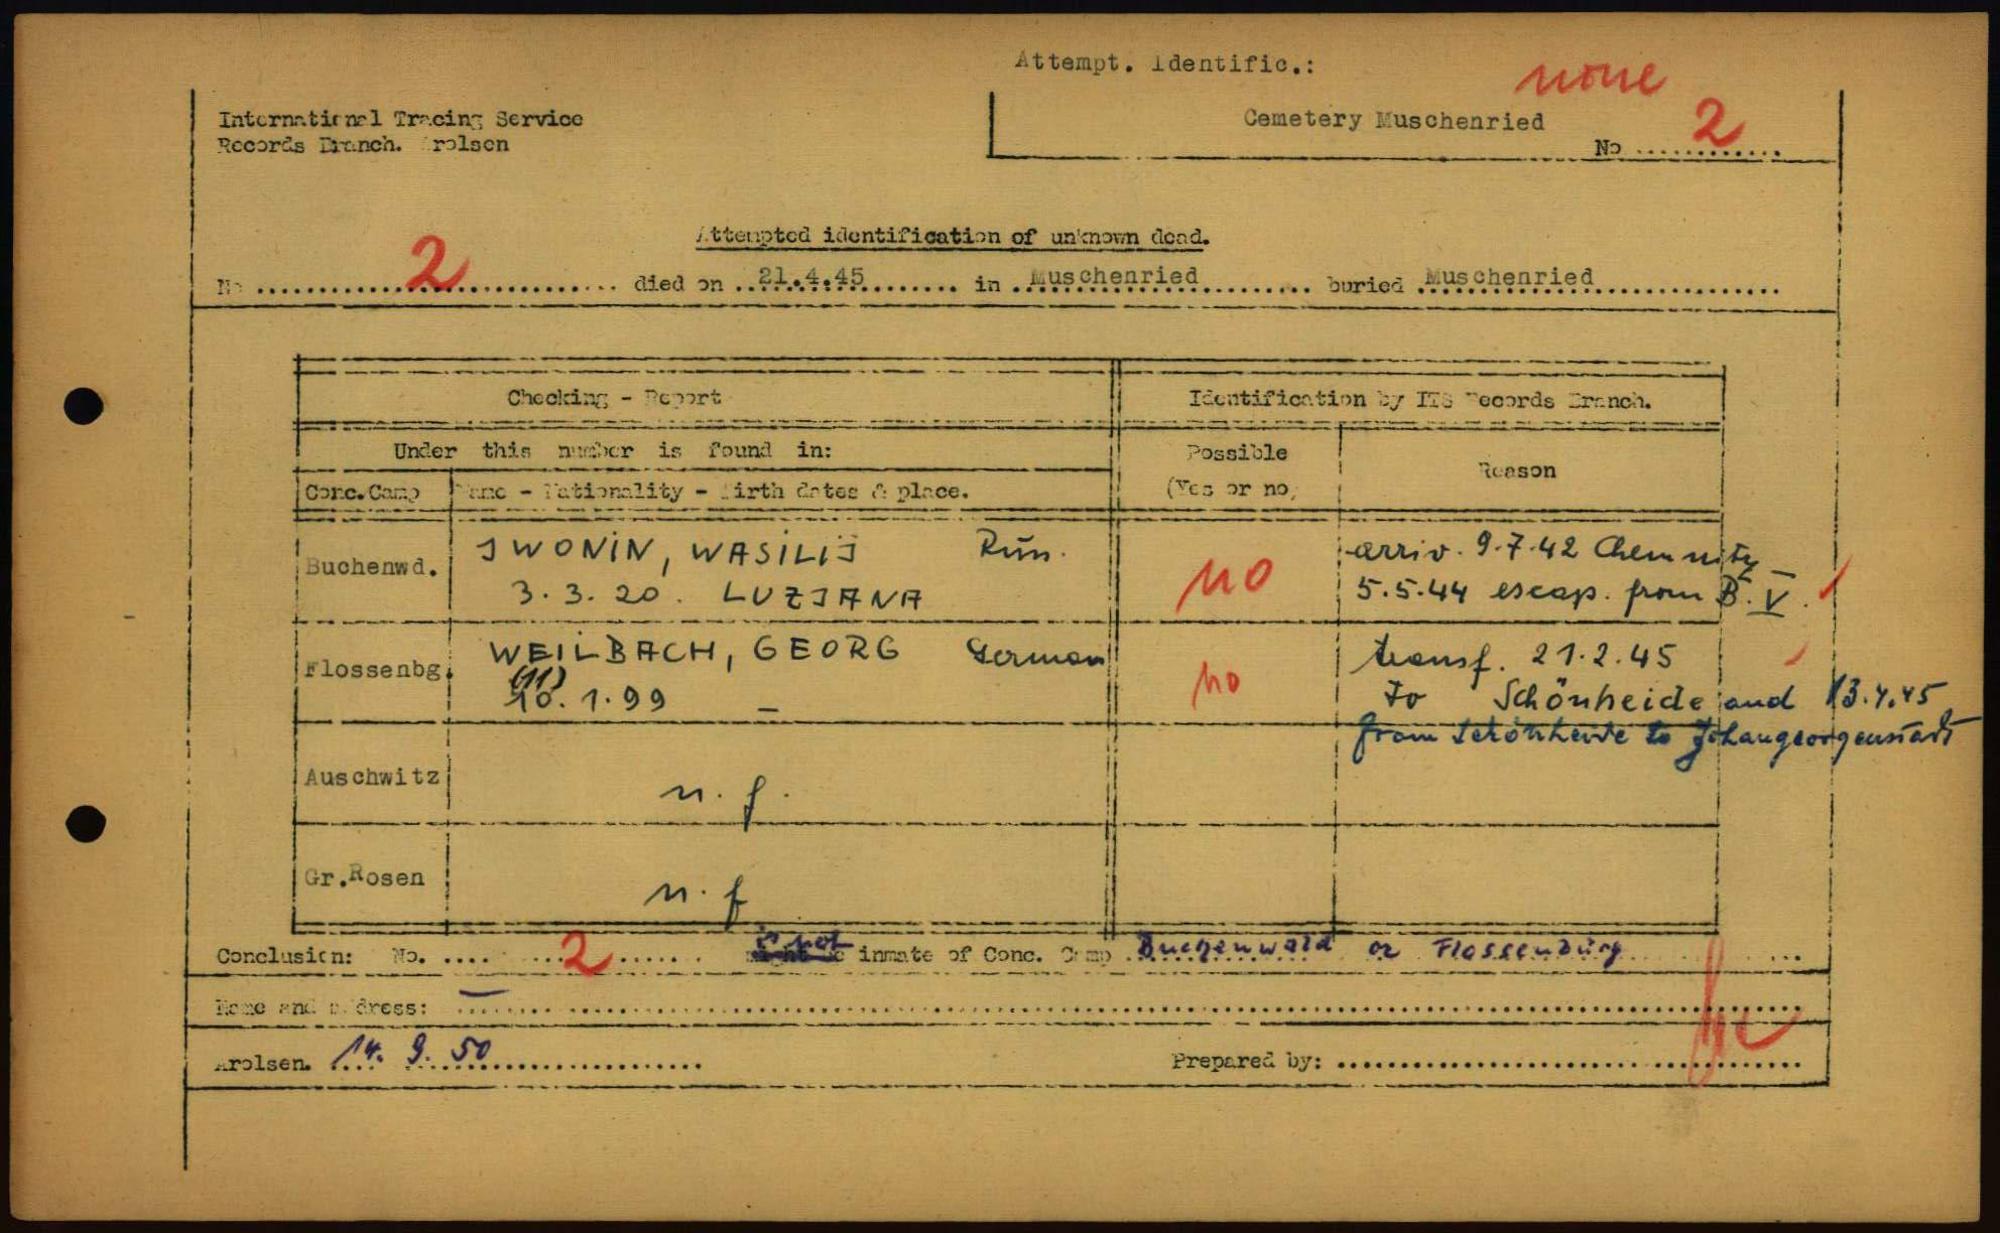 Attempt. Identific.:
none
International Tracing Service
Records Branch. Arolsen
Cemetery Muschenried
No ............ 2
Attempted identification of unknown dead.
No ........ 2 ........ died on ..21.4.45.. in ..Muschenried.. buried ..Muschenried..
Checking - Report
Identification by ITS Records Branch.
Under this number is found in:
Possible
(Yes or no)
Reason
Conc.Camp
Name - Nationality - Birth dates & place.
Buchenwd.
JWONIN, WASILIJ
3.3.20. LUZJANA
no
arriv. 9.7.42 Chemnitz
5.5.44 escap. from B. V.
Flossenbg.
WEILBACH, GEORG German
(11)
10.1.99 —
no
transf. 21.2.45
to Schönheide and 13.4.45
from Schönheide to Johangeorgenstadt
Auschwitz
n. f.
Gr.Rosen
n. f
Conclusion: No. .... 2 .... is not inmate of Conc. Camp Buchenwald or Flossenbürg
Name and address: —
Arolsen. 14. 9. 50
Prepared by: